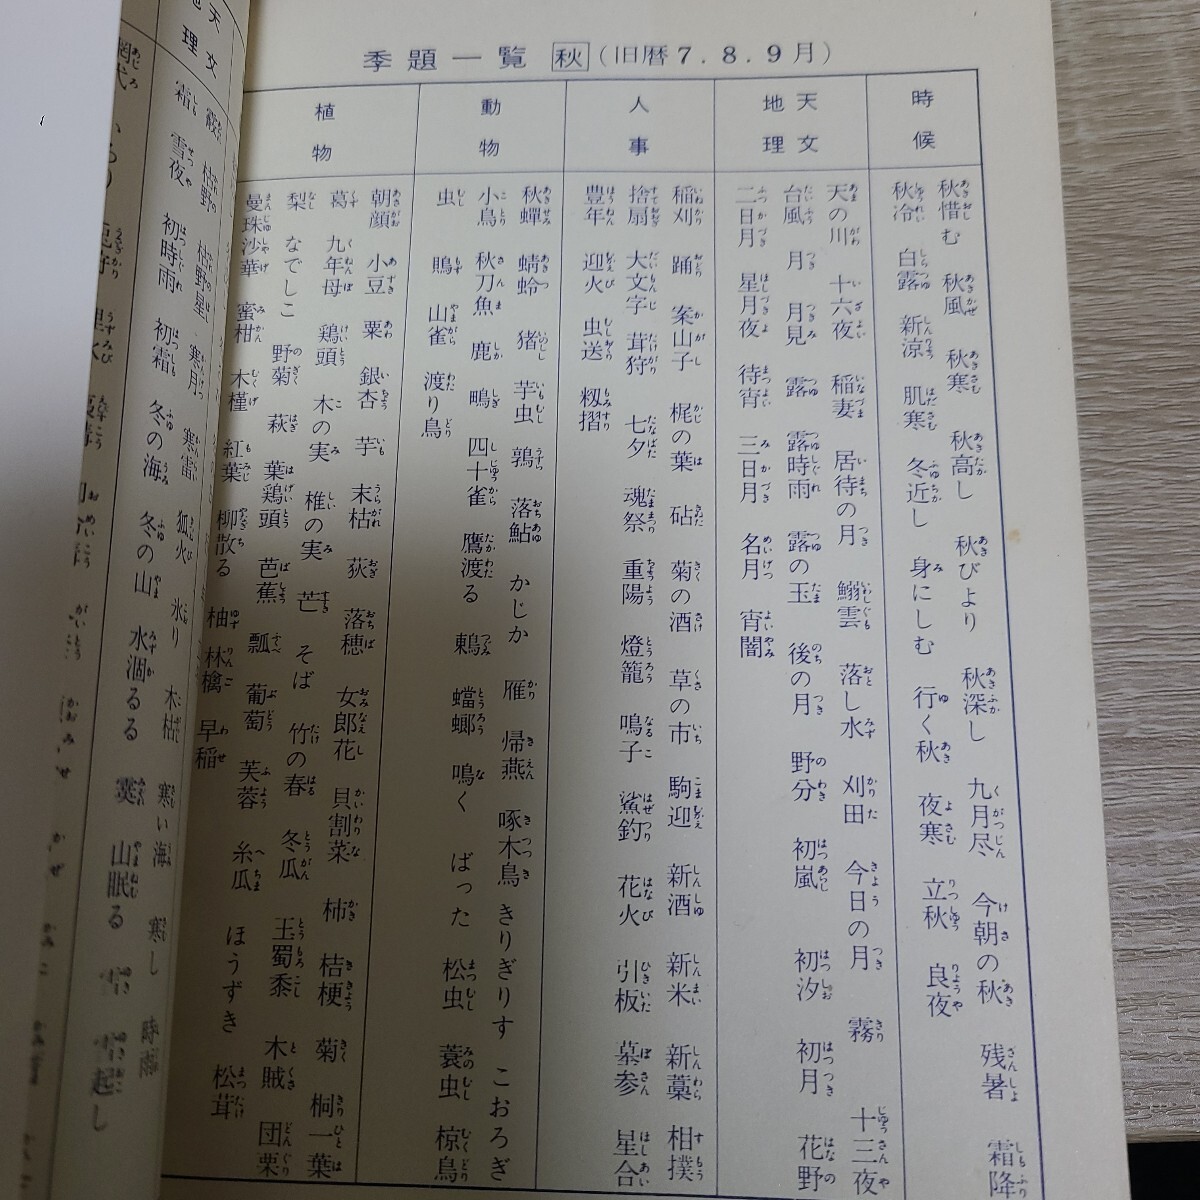 季題一覧 秋 (旧暦7.8.9月)
時候
秋惜む 秋風 秋寒 秋高し 秋びより 秋深し 九月尽 今朝の秋 残暑 霜降
秋冷 白露 新涼 肌寒 冬近し 身にしむ 行く秋 夜寒 立秋 良夜
天文
地理
天の川 十六夜 稲妻 居待の月 鰯雲 落し水 刈田 今日の月 霧 十三夜
台風 月 月見 露 露時雨 露の玉 後の月 野分 初嵐 初汐 初月 花野
二日月 星月夜 待宵 三日月 名月 宵闇
人事
稲刈 踊 案山子 梶の葉 砧 菊の酒 草の市 駒迎 新酒 新米 新藁 相撲
捨扇 大文字 茸狩 七夕 魂祭 重陽 燈籠 鳴子 鯊釣 花火 引板 墓参 星合
豊年 迎火 虫送 籾摺
動物
秋蟬 蜻蛉 猪 芋虫 鶉 落鮎 かじか 雁 帰燕 啄木鳥 きりぎりす こおろぎ
小鳥 秋刀魚 鹿 鴫 四十雀 鷹渡る 鶫 蟷螂 鳴く ばった 松虫 蓑虫 椋鳥
虫 鵙 山雀 渡り鳥
植物
朝顔 小豆 粟 銀杏 芋 末枯 荻 落穂 女郎花 貝割菜 柿 桔梗 菊 桐一葉
葛 九年母 鶏頭 木の実 椎の実 芒 そば 竹の春 冬瓜 玉蜀黍 木賊 団栗
梨 なでしこ 野菊 萩 葉鶏頭 芭蕉 瓢 葡萄 芙蓉 糸瓜 ほうずき 松茸
曼珠沙華 蜜柑 木槿 紅葉 柳散る 柚 林檎 早稲
天文
地理
霰 枯野 枯野星 寒月 寒雷 狐火 氷り 木枯 寒い海 寒し 時雨
霜 雪夜 初時雨 初霜 冬の海 冬の山 水涸るる 霙 山眠る